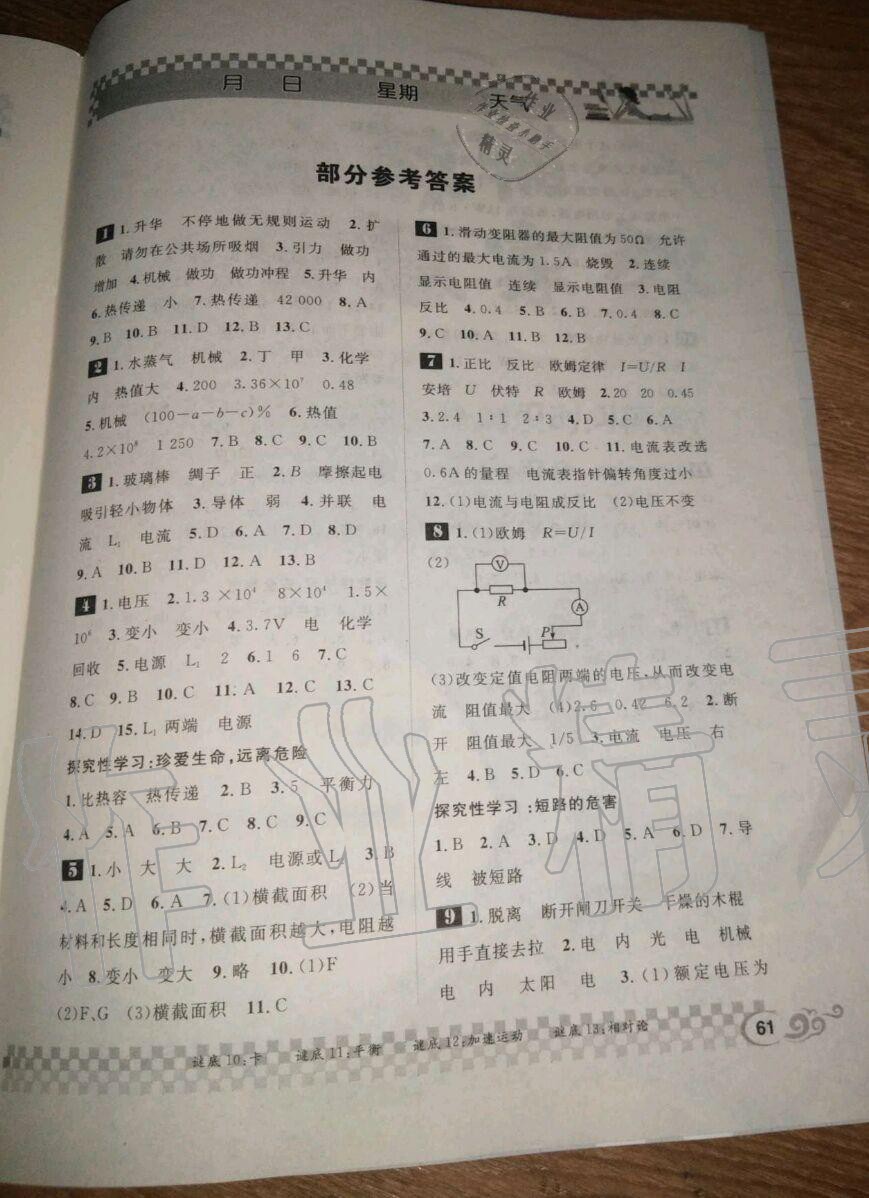 月 日 星期 天气
作业
作业检查小助手
精灵
部分参考答案
1 1.升华 不停地做无规则运动 2.扩
散 请勿在公共场所吸烟 3.引力 做功
增加 4.机械 做功 做功冲程 5.升华 内
6.热传递 小 7.热传递 42 000 8.A
9.B 10.B 11.D 12.B 13.C
2 1.水蒸气 机械 2.丁 甲 3.化学
内 热值大 4.200 3.36×10⁷ 0.48
5.机械 (100-a-b-c)% 6.热值
4.2×10⁸ 1 250 7.B 8.C 9.C 10.B
3 1.玻璃棒 绸子 正 2.B 摩擦起电
吸引轻小物体 3.导体 弱 4.并联 电
流 L₁ 电流 5.D 6.A 7.D 8.D
9.A 10.B 11.D 12.A 13.B
4 1.电压 2.1.3×10⁴ 8×10⁴ 1.5×
10⁶ 3.变小 变小 4.3.7V 电 化学
回收 5.电源 L₁ 2 6.1 6 7.C
8.C 9.B 10.C 11.A 12.C 13.C
14.D 15.L₁两端 电源
探究性学习:珍爱生命,远离危险
1.比热容 热传递 2.B 3.5 平衡力
4.A 5.A 6.B 7.C 8.C 9.C
5 1.小 大 大 2.L₂ 电源或L₂ 3.B
4.A 5.D 6.A 7.(1)横截面积 (2)当
材料和长度相同时,横截面积越大,电阻越
小 8.变小 变大 9.略 10.(1)F
(2)F、G (3)横截面积 11.C
6 1.滑动变阻器的最大阻值为50Ω 允许
通过的最大电流为1.5A 烧毁 2.连续
显示电阻值 连续 显示电阻值 3.电阻
反比 4.0.4 5.B 6.B 7.0.4 8.C
9.C 10.A 11.B 12.B
7 1.正比 反比 欧姆定律 I=U/R I
安培 U 伏特 R 欧姆 2.20 20 0.45
3.2.4 1∶1 2∶3 4.D 5.C 6.A
7.A 8.C 9.C 10.C 11.电流表改选
0.6A的量程 电流表指针偏转角度过小
12.(1)电流与电阻成反比 (2)电压不变
8 1.(1)欧姆 R=U/I
(2)
V
R
A
S
P
(3)改变定值电阻两端的电压,从而改变电
流 阻值最大 (4)2.6 0.42 6.2 2.断
开 阻值最大 1/5 3.电流 电压 右
左 4.B 5.D 6.C
探究性学习:短路的危害
1.B 2.A 3.D 4.D 5.A 6.D 7.导
线 被短路
9 1.脱离 断开闸刀开关 干燥的木棍
用手直接去拉 2.电 内 光 电 机械
电 内 太阳 电 3.(1)额定电压为
谜底10:卡 谜底11:平衡 谜底12:加速运动 谜底13:相对论
61
作业精